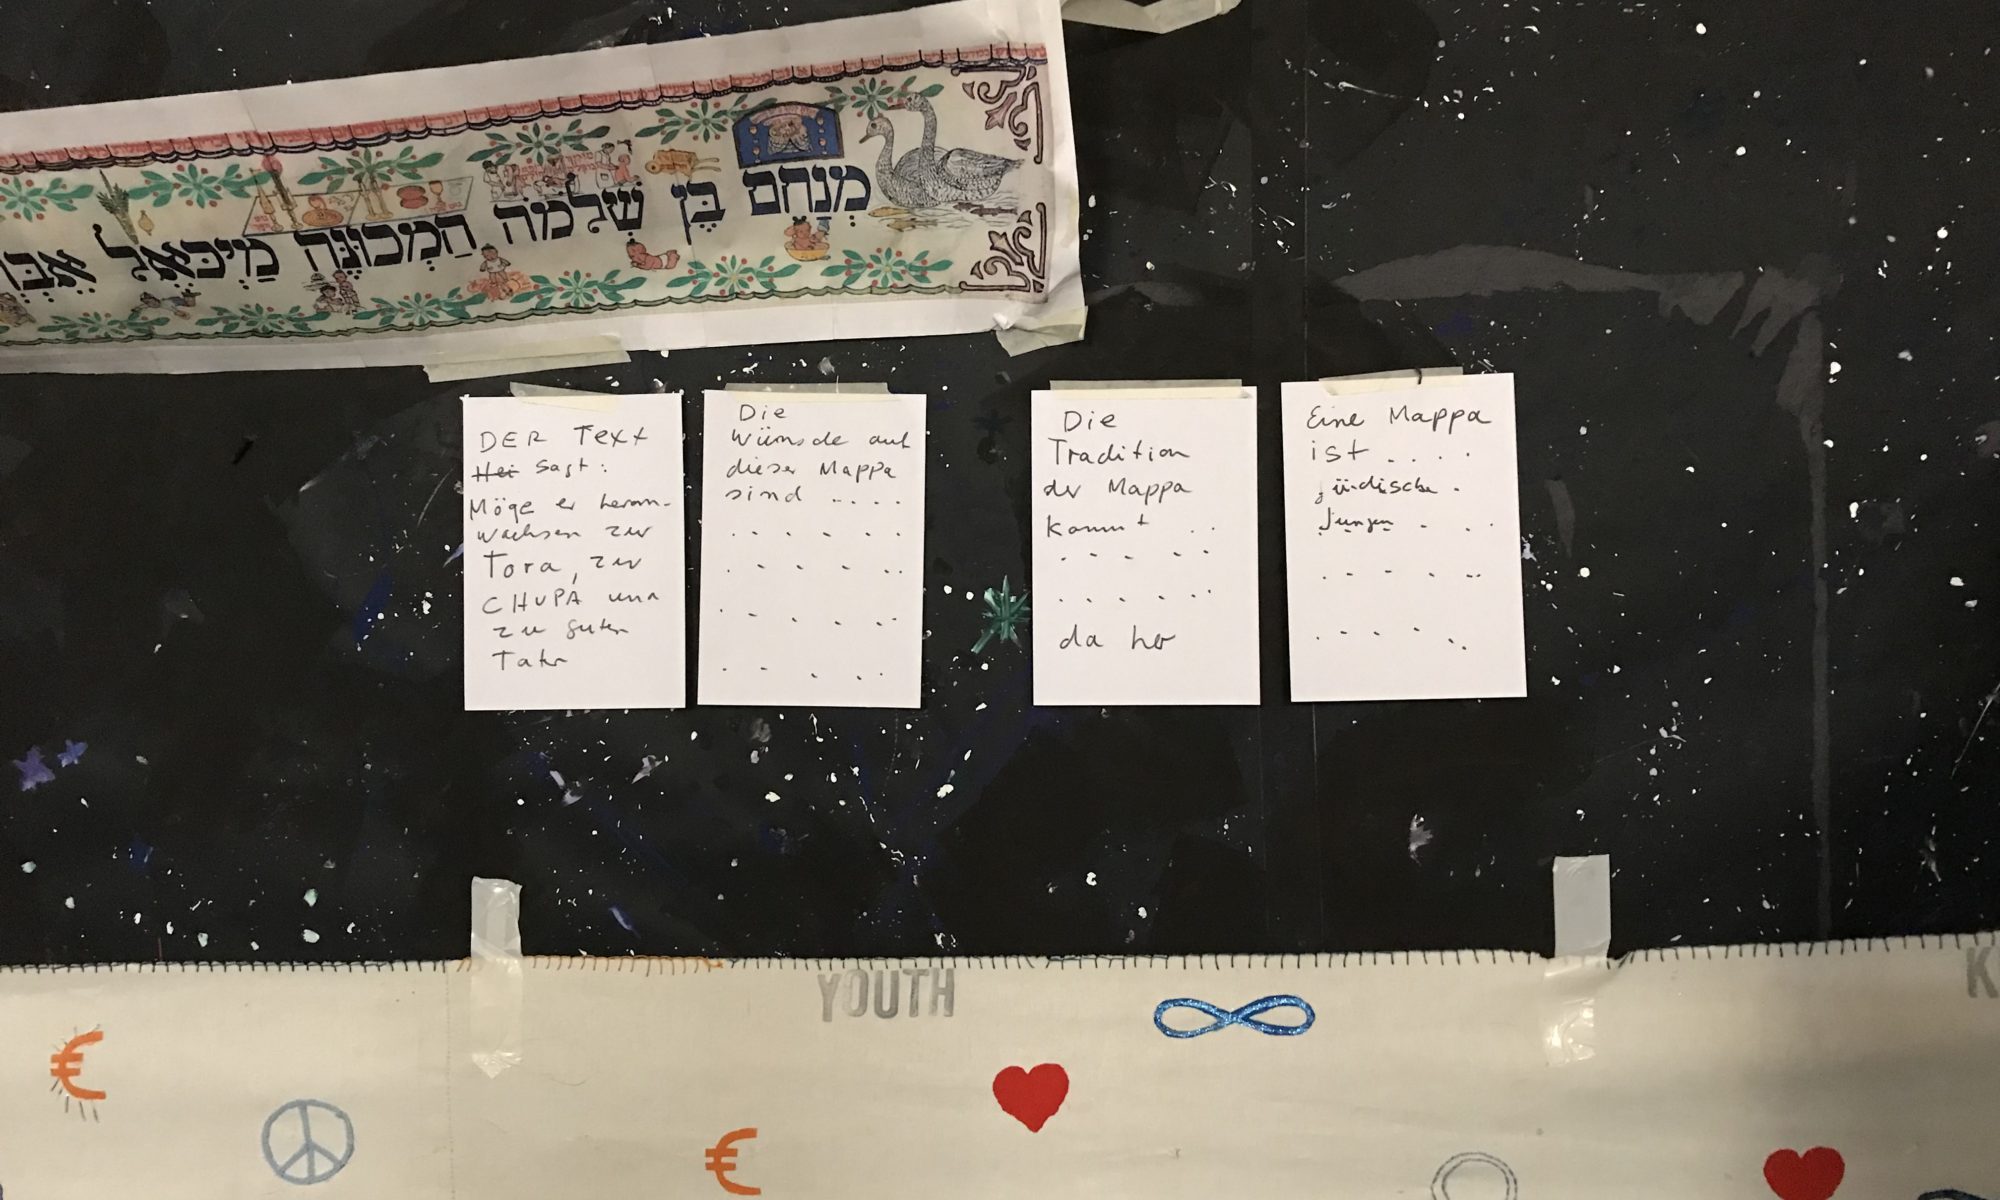 מְנַחֵם בֶּן שְׁלֹמֹה הַמְכוּנֶּה מַיכְּאֶל
DER Text
sagt:
Möge er heran-
wachsen zur
Tora, zur
CHUPA und
zu guten
Taten
Die
Wünsche auf
dieser Mappa
sind ....
Die
Tradition
der Mappa
kommt ..
da her
Eine Mappa
ist ....
jüdische .
Jungen . . .
YOUTH
K
€
€